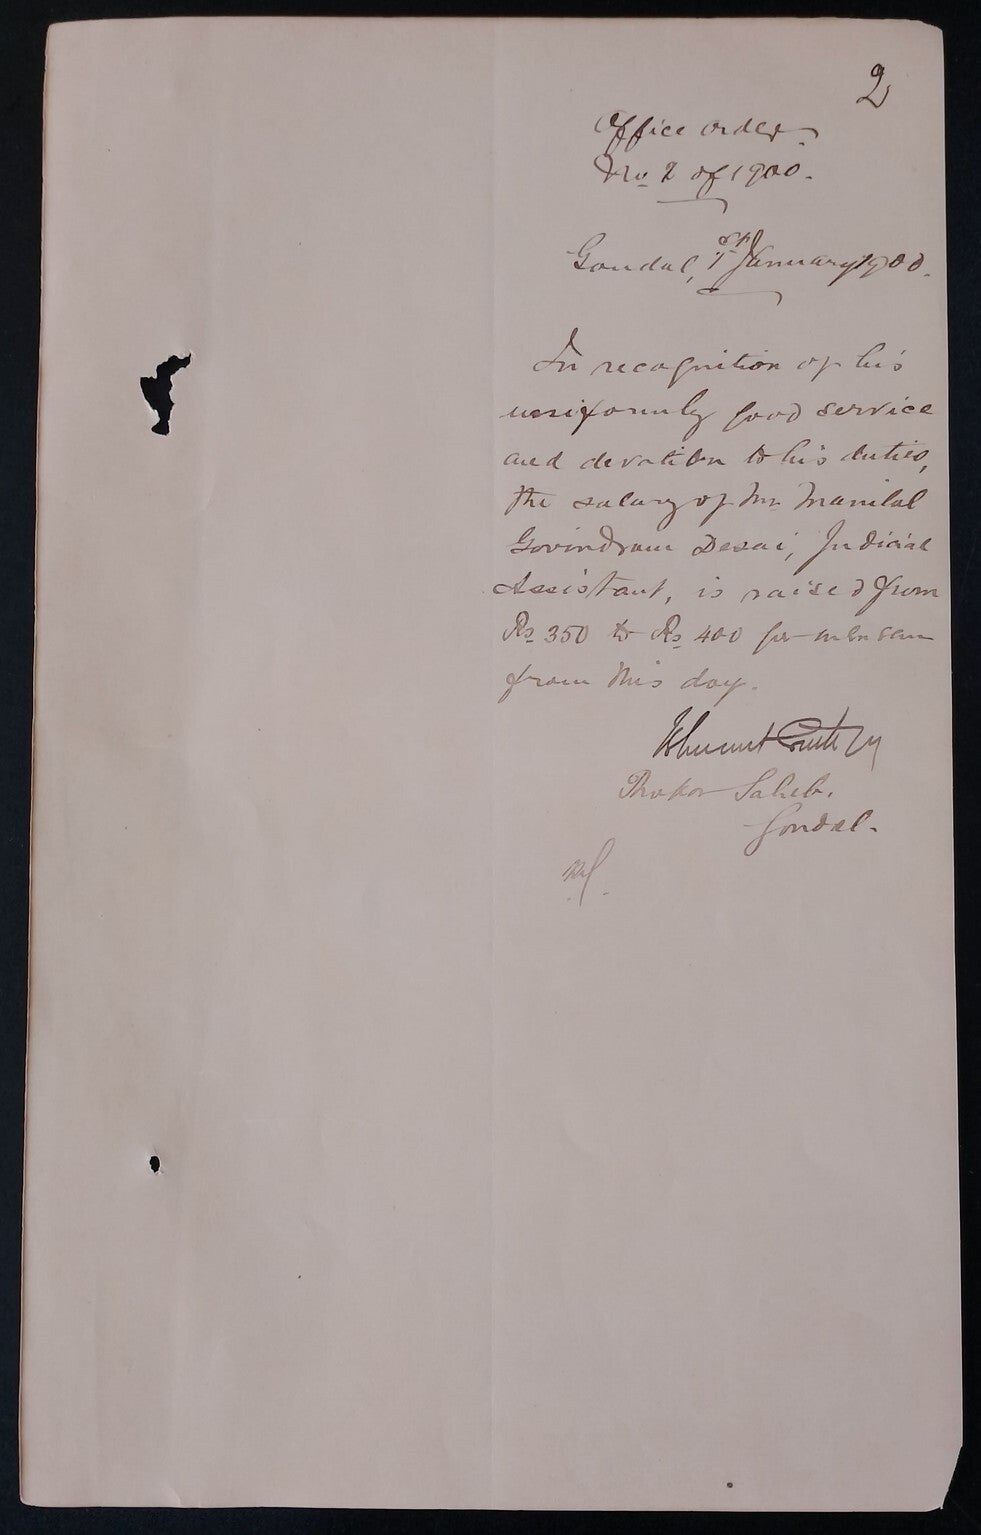 2
Office order
No 2 of 1900.
Gondal, 1st January 1900.
In recognition of his
uniformly good service
and devotion to his duties,
the salary of Mr. Manilal
Govindram Desai, Judicial
Assistant, is raised from
Rs 350 to Rs 400 per mensem
from this day.
Thakor Saheb,
Gondal.